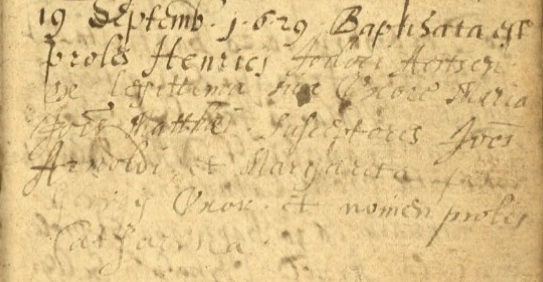 19 Septemb. 1629 Baptisata est
proles Henrici Aertsen
legittima sua Uxore Maria
Matthei. Susceptores Joes
Arnoldi et Margareta
Uxor. et nomen prolis
Catharina.